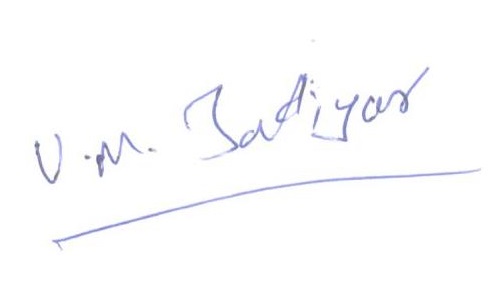 V.M. Batiyar